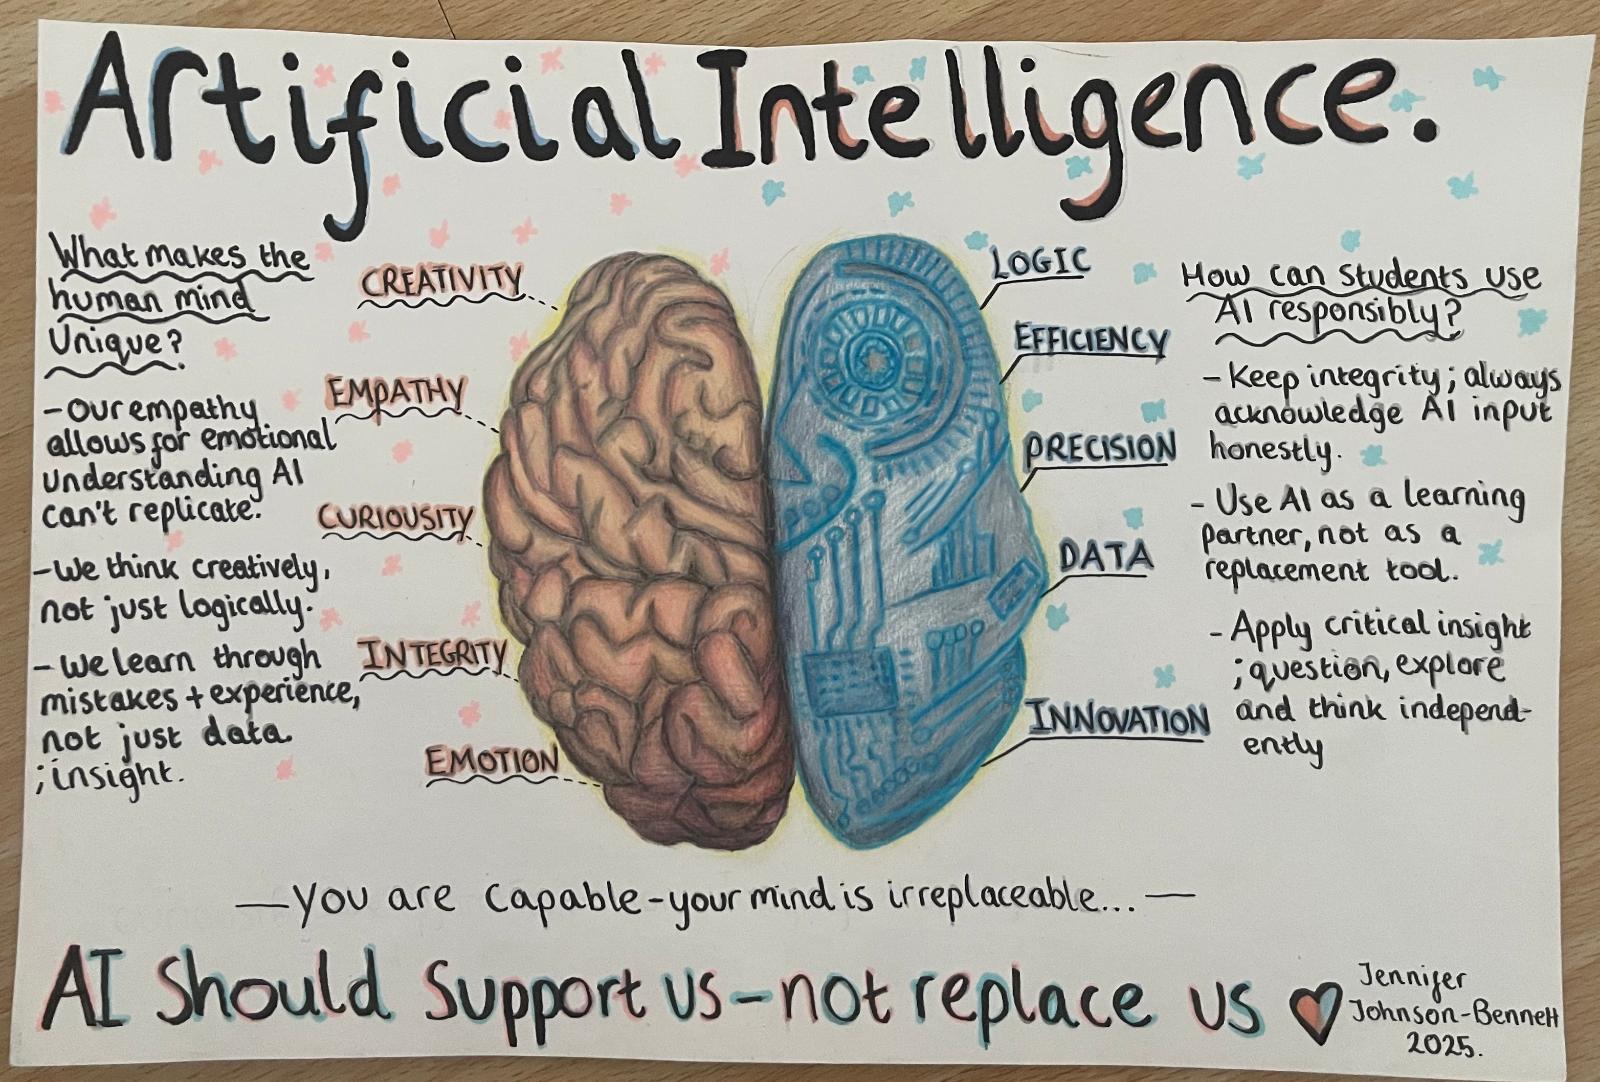 Artificial Intelligence.
What makes the
human mind
Unique?
- Our empathy
allows for emotional
understanding AI
can't replicate.
- We think creatively,
not just logically.
- We learn through
mistakes + experience,
not just data.
; insight.
CREATIVITY
EMPATHY
CURIOUSITY
INTEGRITY
EMOTION
LOGIC
EFFICIENCY
PRECISION
DATA
INNOVATION
How can students use
AI responsibly?
- Keep integrity; always
acknowledge AI input
honestly.
- Use AI as a learning
partner, not as a
replacement tool.
- Apply critical insight
; question, explore
and think independ-
ently
— You are capable - your mind is irreplaceable... —
AI should support us - not replace us
Jennifer
Johnson-Bennett
2025.